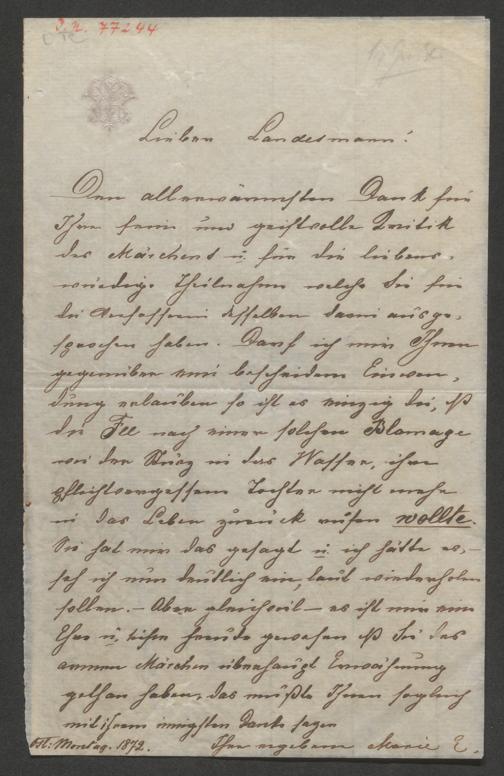 J. N. 77244
Lieber Landesmann!
Den allerwärmsten Dank für
Ihre feine und geistvolle Kritik
des Märchens u. für die liebens-
würdige Theilnahme welche Sie für
die Verfasserin desselben darin ausge-
sprochen haben. Darf ich mir Ihnen
gegenüber eine bescheidene Einwen-
dung erlauben so ist es einzig die, daß
die Fee nach einer solchen Blamage
wie der Sturz in das Wasser, ihre
pflichtvergessene Tochter nicht mehr
in das Leben zurück rufen wollte.
Sie hat mir das gesagt u. ich hätte es,–
seh ich nun deutlich ein, laut wiederholen
sollen. – Aber gleichviel – es ist mir eine
Ehre u. tiefe Freude gewesen daß Sie des
armen Märchen überhaupt Erwähnung
gethan haben, das mußte Ihnen sogleich
mit ihrem innigsten Danke sagen
Ihre ergebene Marie E.
Ost: Montag. 1872.